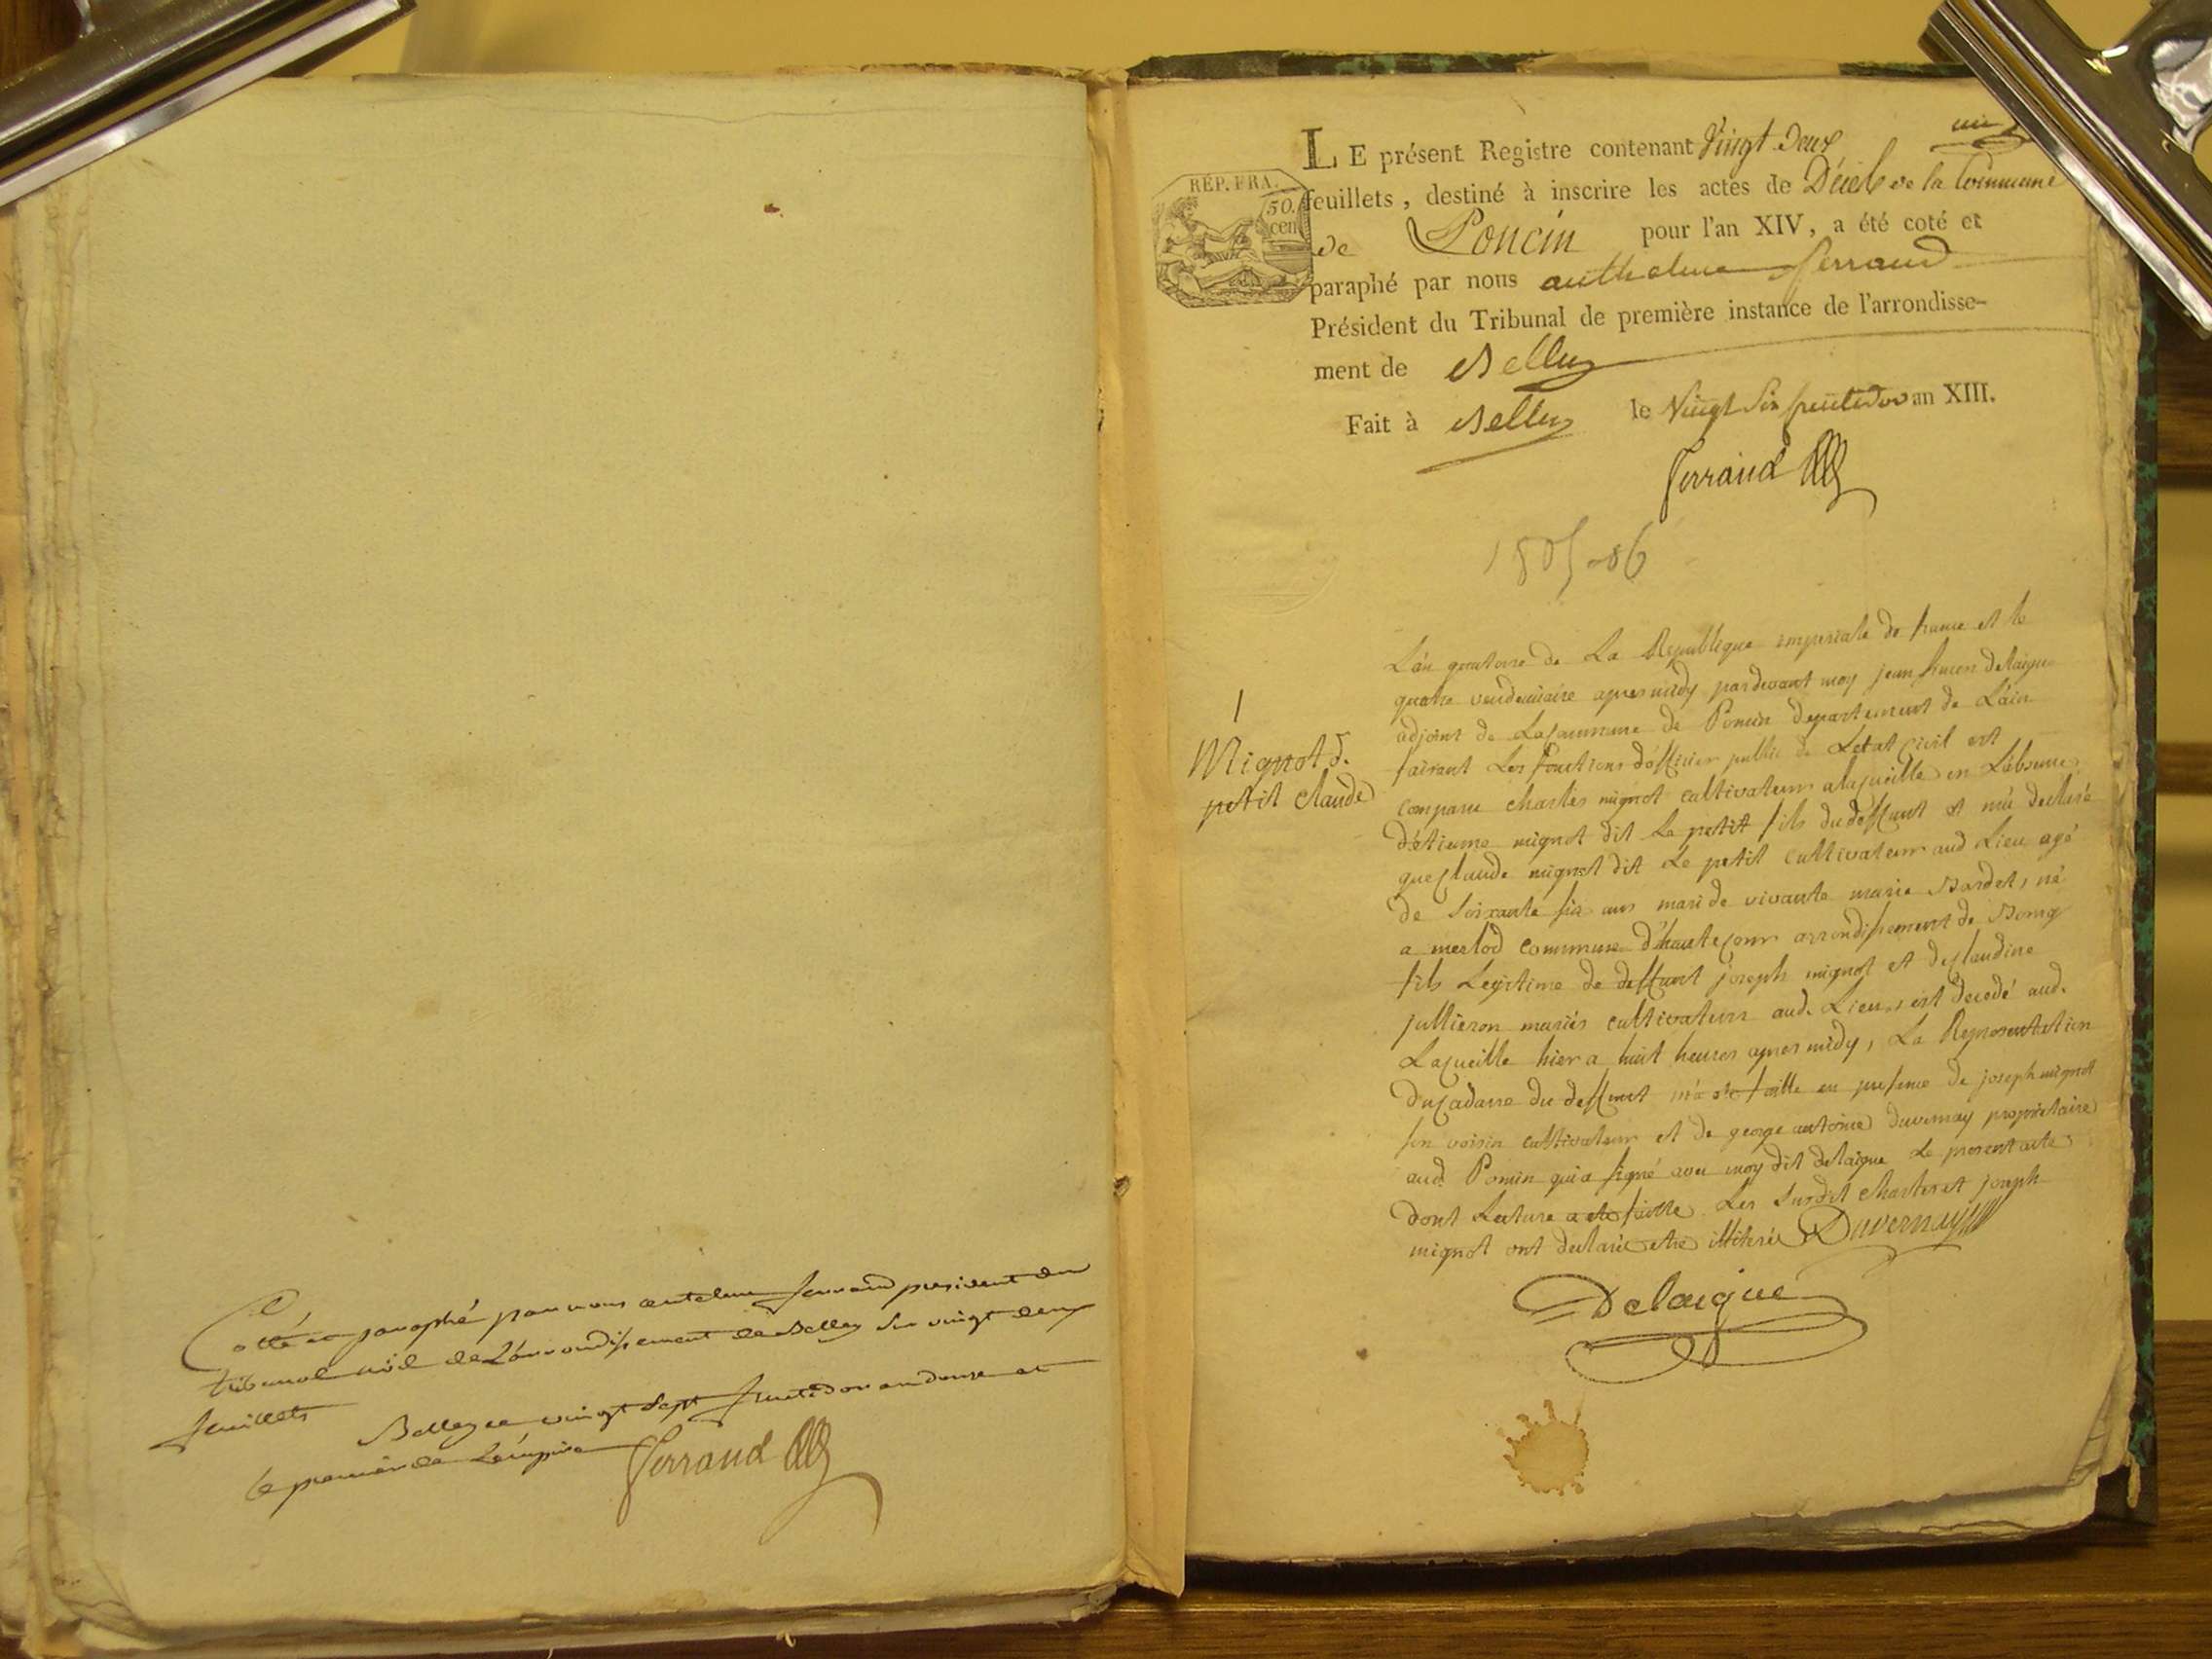 Cotté et paraphé par nous antelme ferrand president du
tribunal civil de L'arrondissement de Belley sur vingt deux
feuillets
Belley ce vingt sept fructidor an douze et
le premier de L'empire Ferrand
un
LE présent Registre contenant Vingt Deux
feuillets, destiné à inscrire les actes de Décès de la Commune
de Poncin pour l'an XIV, a été coté et
paraphé par nous anthelme ferrand
Président du Tribunal de première instance de l'arrondisse-
ment de Belley
Fait à Belley le Vingt Six fructidor an XIII.
Ferrand
RÉP. FRA.
50.
cen
1805-06
1
Mignot d.
petit Claude
L'an quatorze de La Republique imperiale de france et le
quatre vendemiaire apres midy pardevant moy jean simon delaigue
adjoint de La commune de Poncin departement de L'ain
faisant Les fonctions d'officier public de L'etat civil est
comparu charles mignot cultivateur a lajueille en L'absence
d'étienne mignot dit Le petit fils du deffunt et m'a declaré
que Claude mignot dit Le petit cultivateur aud Lieu agé
de soixante six ans mari de vivante marie Bardet, né
a merlod commune d'hautecour arrondissement de Bourg
fils Legitime de deffunt joseph mignot et de claudine
jullieron mariés cultivateurs aud. Lieu, est decedé aud.
Lajueille hier a huit heures apres midy, La Representation
du cadavre du deffunt m'a ete faitte en presence de joseph mignot
son voisin cultivateur et de george antoine duvernay proprietaire
aud. Poncin qui a signé avec moy dit delaigue Le present acte
dont Lecture a ete faitte Les susdit charles et joseph
mignot ont declaré etre illiteré Duvernay
Delaigue